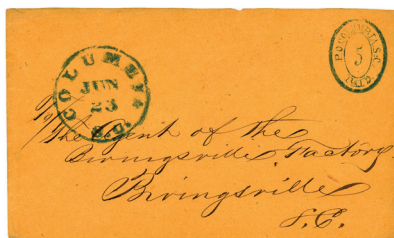 COLUMBIA
JUN
23
S.C.
P.O. COLUMBIA S.C.
5
PAID
To
The Agent of the
Bivingsville Factory
Bivingsville
S.C.